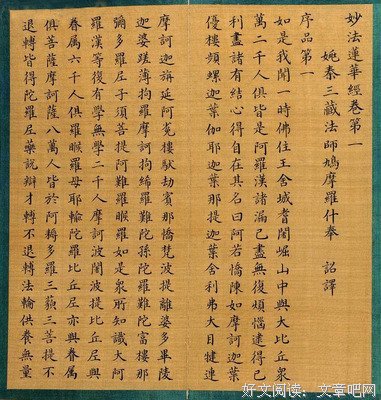 妙法蓮華經卷第一
姚秦三藏法師鳩摩羅什奉 詔譯
序品第一
如是我聞一時佛住王舍城耆闍崛山中與大比丘衆
萬二千人俱皆是阿羅漢諸漏已盡無復煩惱逮得己
利盡諸有結心得自在其名曰阿若憍陳如摩訶迦葉
優樓頻螺迦葉伽耶迦葉那提迦葉舍利弗大目揵連
摩訶迦旃延阿㝹樓馱劫賓那憍梵波提離婆多畢陵
迦婆蹉薄拘羅摩訶拘絺羅難陀孫陀羅難陀富樓那
彌多羅尼子須菩提阿難羅睺羅如是衆所知識大阿
羅漢等復有學無學二千人摩訶波闍波提比丘尼與
眷属六千人俱羅睺羅母耶輸陀羅比丘尼亦與眷属
俱菩薩摩訶薩八萬人皆於阿耨多羅三藐三菩提不
退轉皆得陀羅尼樂説辯才轉不退轉法輪供養無量
好文阅读：文章吧网